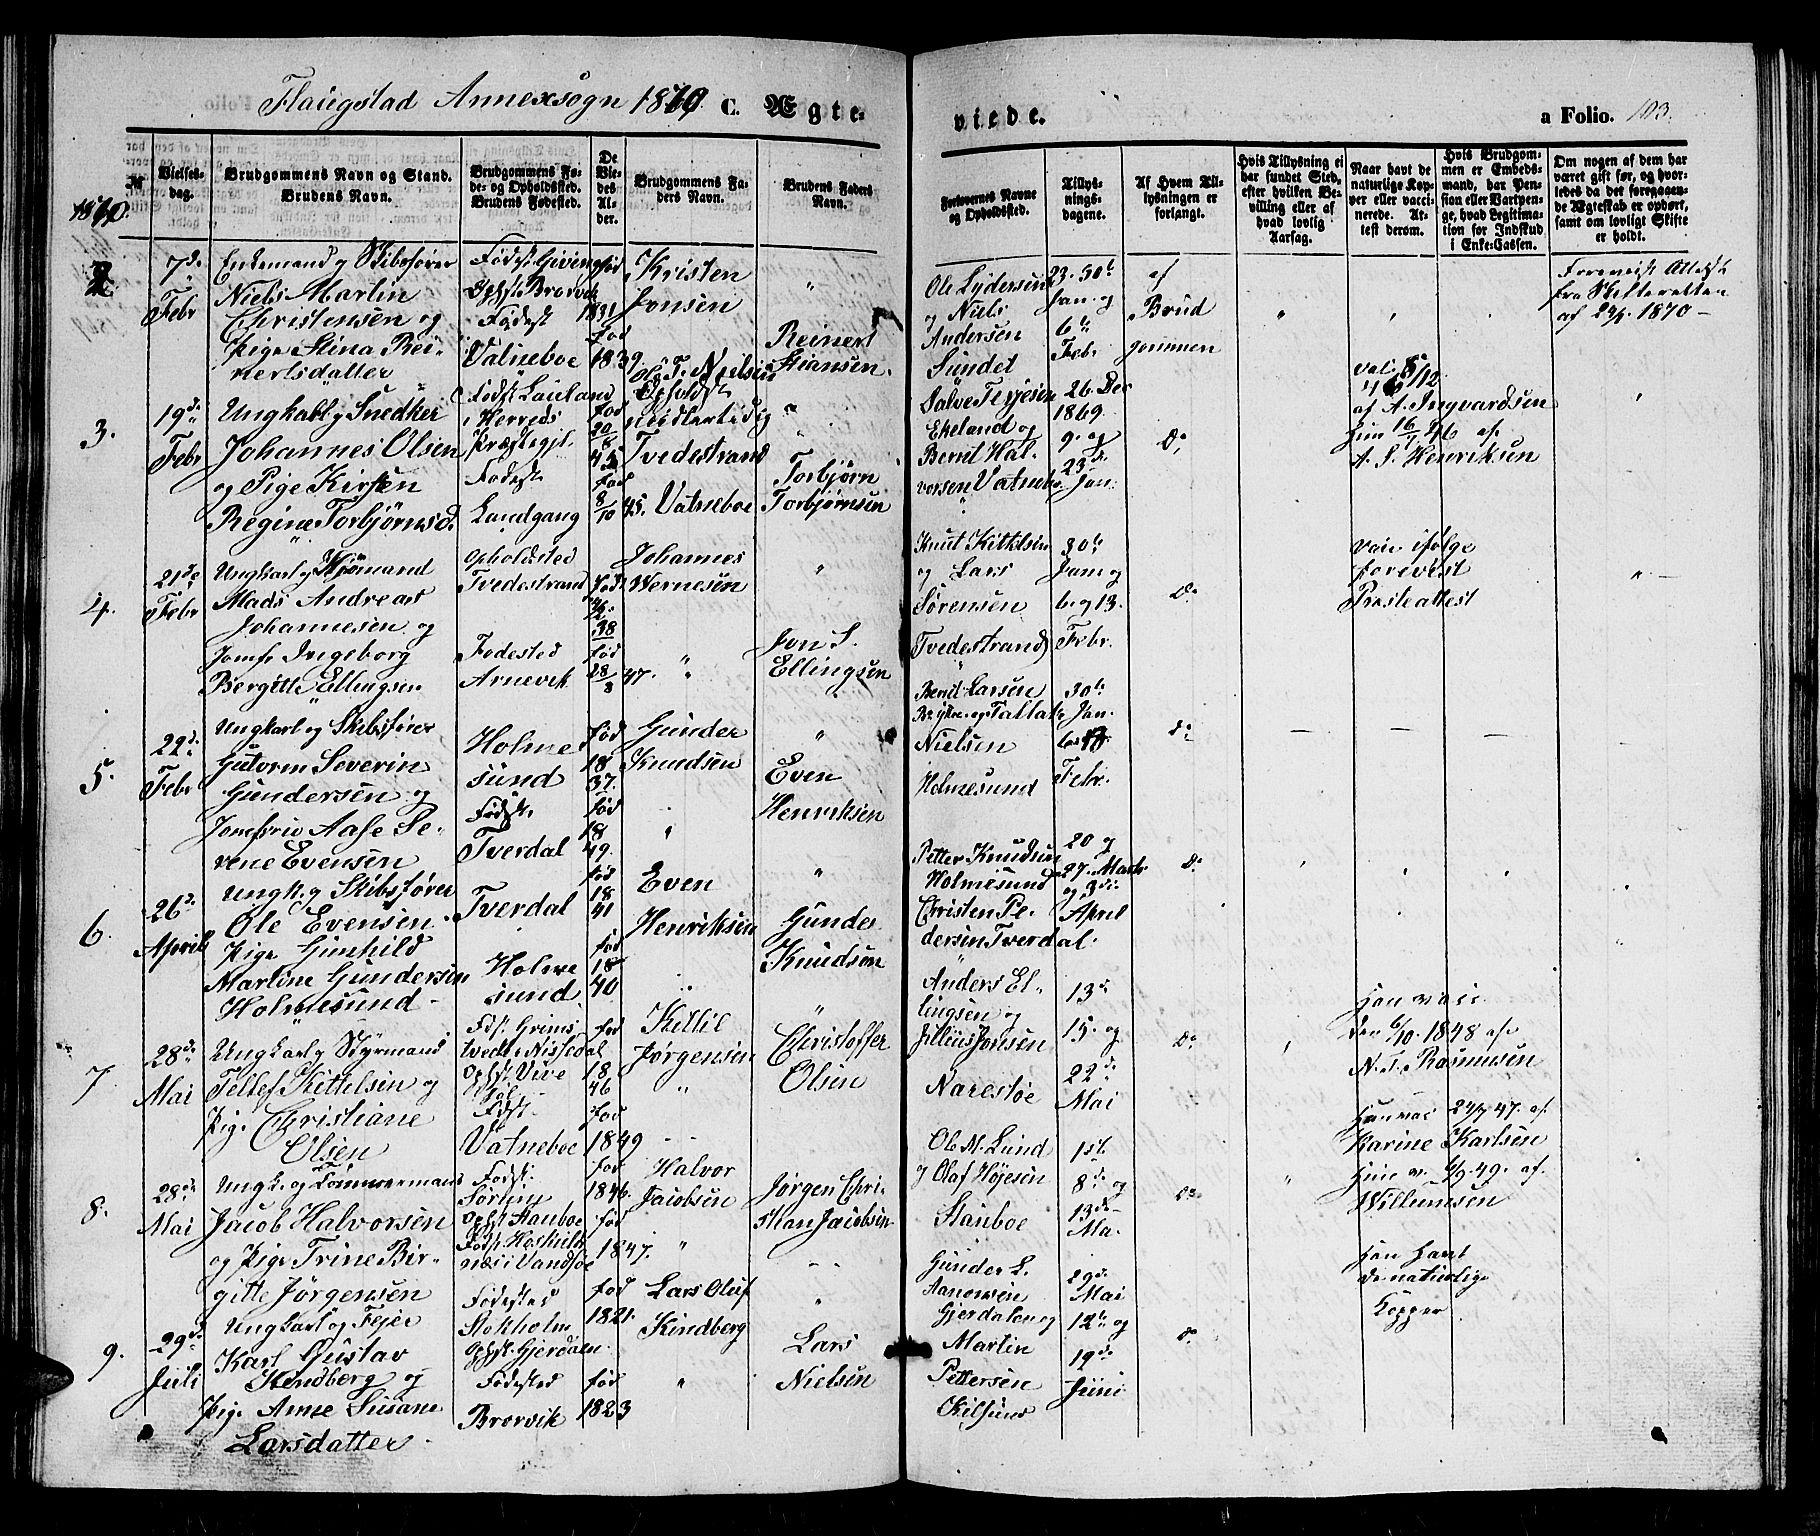 Flaugstad Annexsogn 1870. C. Ægte-
viede.
a Folio. 103.
No
1870.
Vielses-
dag.
Brudgommens Navn og Stand.
Brudens Navn.
Brudgommens Fø-
de- og Opholdssted.
Brudens Fødested.
De
Vie-
des
Al-
der.
Brudgommens Fa-
ders Navn.
Brudens Faders
Navn.
Forlovernes Navne
og Opholdssted.
Tillys-
nings-
dagene.
Af Hvem Til-
lysningen er
forlangt.
Hvis Tillysning ei
har fundet Sted,
efter hvilken Be-
villing eller af
hvad lovlig
Aarsag.
Naar havt de
naturlige Kop-
per eller vacci-
nerede. At-
test derom.
Hvis Brudgom-
men er Embeds-
mand, har Pen-
sion eller Vartpen-
ge, hvad Legitima-
tion for Indskud
i Enke-Cassen.
Om nogen af dem har
været gift før, og hvor-
ledes da det foregaaen-
de Ægteskab er ophørt,
samt om lovligt Skifte
er holdt.
2
7de
Febr
Enkemand og Skibsfører
Niels Martin
Christensen og
Pige Stina Rei-
nertsdatter
Fødest. Giving
Ophst. Brorvik
Fødest
Vatneboe
født
1831
fød
1839.
Kristen
Jonsen
"
Reinert
Stiansen.
Ole Lydersen
og Niels
Andersen
Sundet
23. 30te
Jan. og
6te
Febr.
af
Brud
gommen
"
Forevist Attest
fra Skifteretten
af 29/1 1870 –
3.
19de
Febr
Ungkarl og Snedker
Johannes Olsen
og Pige Kirsten
Regine Torbjørnsd.
Fødst. Lauland
i Herreds
Præstegjl.
Fødest
Landgang
fød
20/8
45
fød
8/10 45.
Ole T. Nielsen
Opholdst
midlertidig
Tvedestrand
Vatneboe
"
Torbjørn
Torbjørnsen
Salve Terjesen
Ekeland og
Bernt Hal-
vorsen Vatnebo
26. Dec
1869.
9. og
23de
Jan.
Do
af A. Ingvardsen
hun 16/7 46 af
A. S. Henriksen
4.
21de
Febr
Ungkarl og Sjømand
Mads Andreas
Johannesen og
Jomfr Ingeborg
Bergitte Ellingsen
Opholdsted
Tvedestrand
Fødested
Arnevik
38
fød
28/8 47.
Johannes
Wernesen
"
Jon S.
Ellingsen
Knut Kittelsen
og Lars
Sørensen
Tvedestrand
30te
Jan og
6. og 13.
Febr.
Do
Vacc ifølge
forevist
Præsteattest
"
5.
22de
Febr
Ungkarl og Skibsfører
Gutorm Severin
Gundersen og
Jomfru Aase Se-
verine Evensen
Holme
sund
Fødst.
Tverdal
fød
18
37.
fød
18
49.
Gunder
Knudsen
"
Even
Henriksen
Bernt Larsen
Nielsen
Holmesund
30te
Jan.
Febr.
Do
6.
26de
April
Ungk. og Skibsfører
Ole Evensen.
Pige Gunhild
Martine Gundersen
Holmesund
Tverdal
Holme
sund
fød
18
41
fød
18
40
Even
Henriksen
"
Gunder
Knudsen
Petter Knudsen
Holmesund
Christen Pe-
dersen Tverdal.
20 og
27. Marts
og 3die
April
Do
7
28de
Mai
Ungkarl og Styrmand
Tellef Kittelsen og
Pige Christiane
Olsen
Fdst. Grims
tvedt i Nissedal
Ophst. Vive
Fdst.
Vatneboe
fød
18
46
fød
1849
Kittil
Jørgensen
"
Christoffer
Olsen
Anders El-
lingsen og
Julius Jonsen
Narestøe
13de
15. og
22de
Mai
Do
han vacc.
den 6/10. 1848 af
N. T. Rasmusen
Hun vac 24/7 47. af.
Karine Karlsen
8.
28de
Mai
Ungk. og Tømmermand
Jacob Halvorsen
og Pige Trine Bir-
gitte Jørgensen
Fødst.
Ophst. Stauboe
næs i Vandsøe
fød
1846.
fød
1847.
Halvor
Jacobsen
"
Jørgen Chri-
stian Jacobsen
Ole M. Lund
og Olaf Højesen
Stauboe
1ste
8de og
13de
Mai
Do
hun v. 6/9. 49. af.
Willumsen
9.
29de
Juli
Ungkarl og Fejer
Karl Gustav
Kindberg og
Pige Anne Susane
Larsdatter.
Fødested
Stokholm
Ophst. Gjerdalen.
Fødested
Brorvik
fød
1821.
fød
1823
Lars Oluf
Kindberg
"
Lars
Nielsen
Gunder L.
Aanonsen
Gjerdalen og
Martin
Pettersen
Kilsund
29de
Mai
12te og
19de
Juni
do
han havt
de naturlige
Kopper